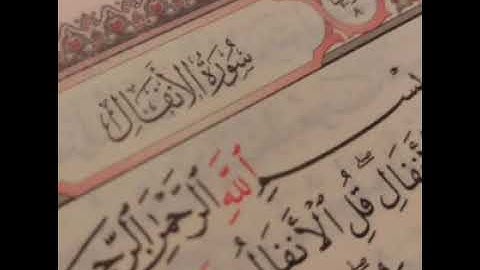 سُورَةُ الأَنفَالِ
بِسْمِ اللَّهِ الرَّحْمَٰنِ الرَّحِ
أَنفَالِ ۖ قُلِ الْأَنفَالُ